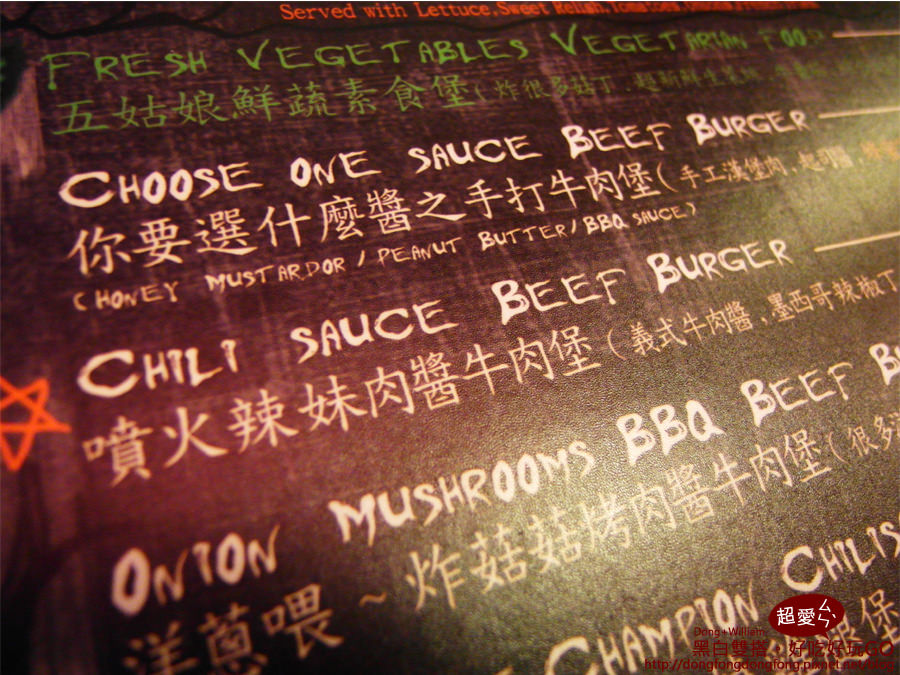 Served with Lettuce,Sweet Relish,Tomatoes,
FRESH VEGETABLES VEGETARIAN FOOD
五姑娘鮮蔬素食堡(炸很多菇丁,超新鮮生菜絲,
CHOOSE ONE SAUCE BEEF BURGER
你要選什麼醬之手打牛肉堡(手工漢堡肉,起司醬,
(HONEY MUSTARDOR/PEANUT BUTTER/BBQ SAUCE)
CHILI SAUCE BEEF BURGER
噴火辣妹肉醬牛肉堡(義式牛肉醬,墨西哥辣椒丁
ONION MUSHROOMS BBQ BEEF BU
洋蔥喂~炸菇菇烤肉醬牛肉堡(很多
CHAMPION CHILIS
堡
超愛ㄣ
Dong+William
黑白雙搭。好吃好玩GO
http://dongfongdongfong.pixnet.net/blog